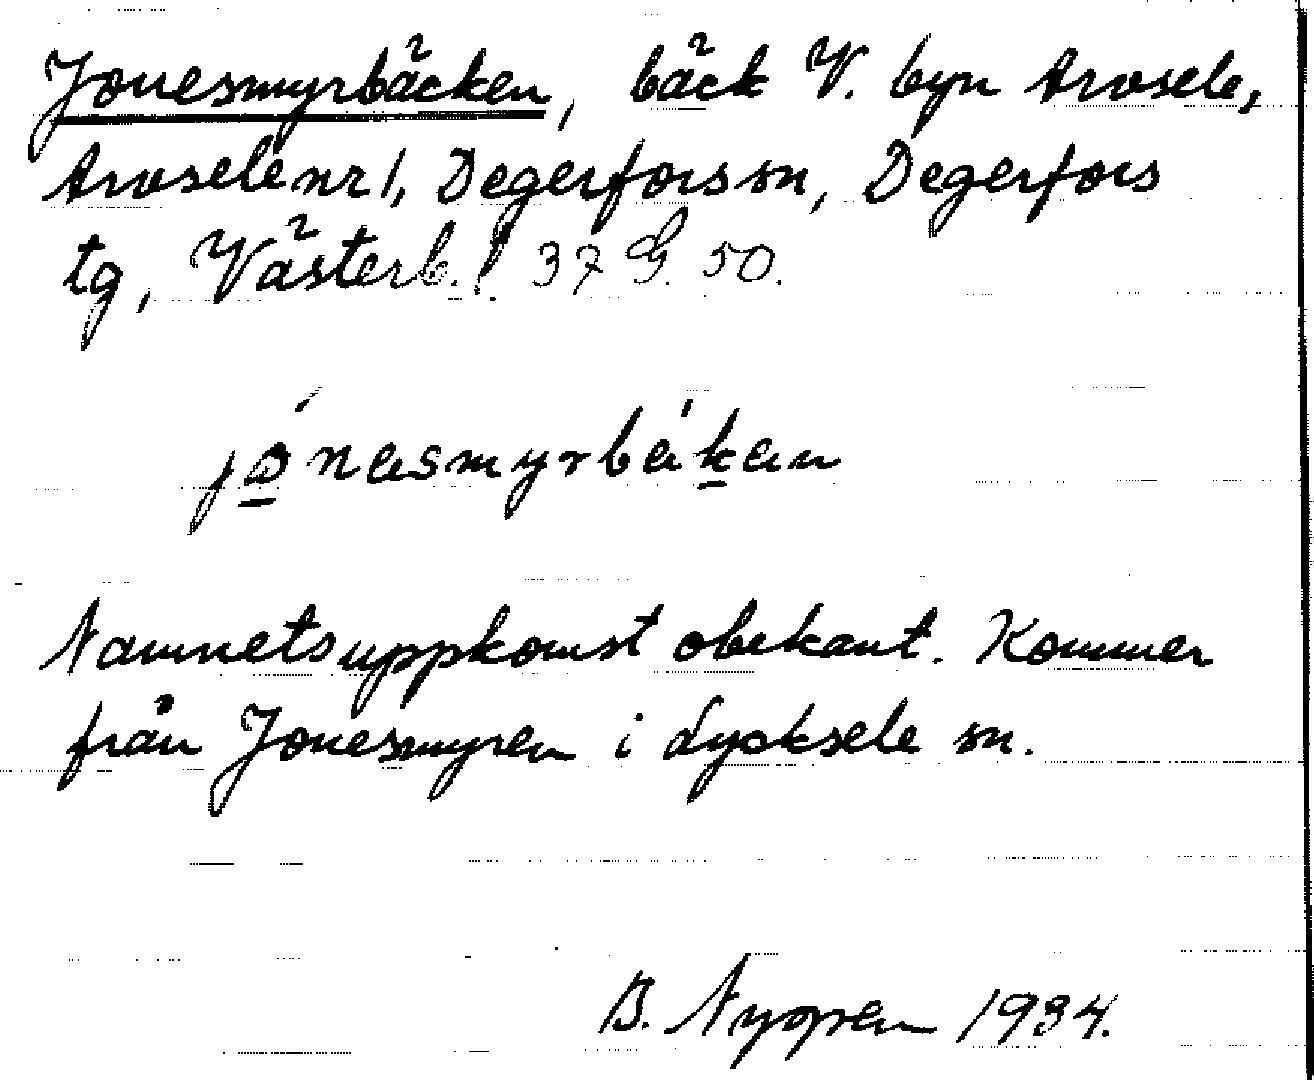 Jonesmyrbäcken, bäck V. byn Arvsele,
Arvsele nr 1, Degerfors sn, Degerfors
tg, Västerb. l 37 G. 50.
Namnets uppkomst obekant. Kommer
från Jonesmyren i Lycksele sn.
B. Nygren 1934.